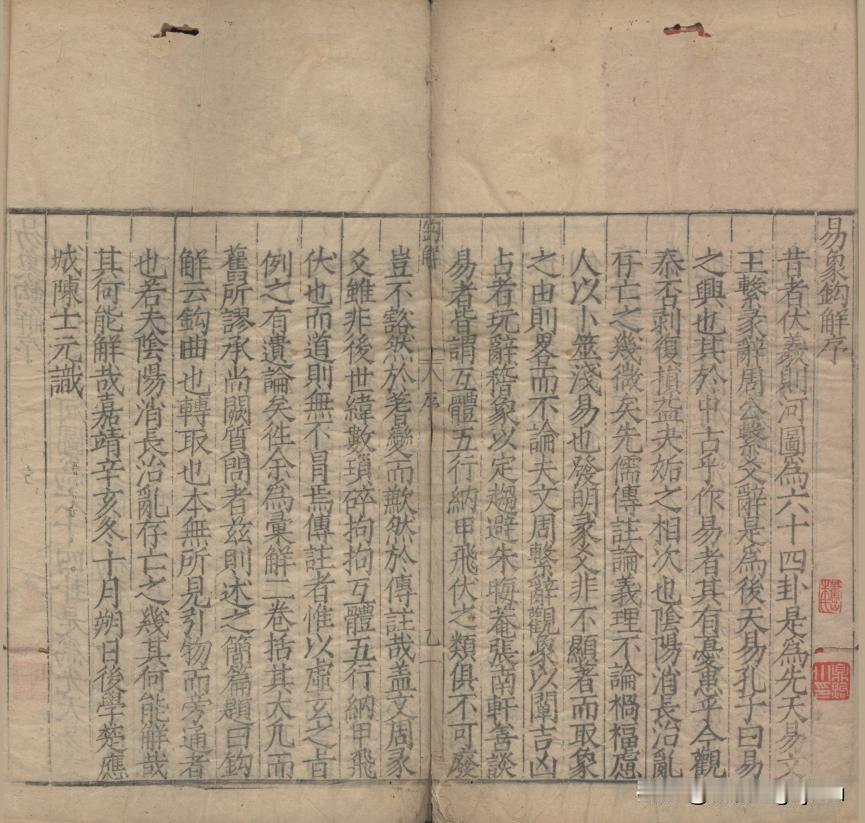 易象鈎解序
昔者伏羲則河圖為六十四卦是為先天易文
王繫彖辭周公繫爻辭是為後天易孔子曰易
之興也其於中古乎作易者其有憂患乎今觀
泰否剥復損益夬姤之相次也陰陽消長治亂
存亡之幾微矣先儒傳註論義理不論禍福慮
人以卜筮淺易也發明彖爻非不顯著而取象
之由則畧而不論夫文周繫辭觀象以闡吉凶
占者玩辭稽象以定趨避朱晦菴張南軒善談
易者皆謂互體五行納甲飛伏之類俱不可廢
鈎解
序
乙一
豈不豁然於蓍變而歉然於傳註哉盖文周彖
爻雖非後世緯數瑣碎拘拘互體五行納甲飛
伏也而道則無不冒焉傳註者惟以虛玄之旨
例之有遺論矣徃余為彙解二卷括其大凡而
舊所謬承尚闕質問者兹則述之簡篇題曰鈎
解云鈎曲也轉取也本無所見引物而旁通者
也若夫陰陽消長治亂存亡之幾其何能解哉
其何能解哉嘉靖辛亥冬十月朔日後學楚應
城陳士元識